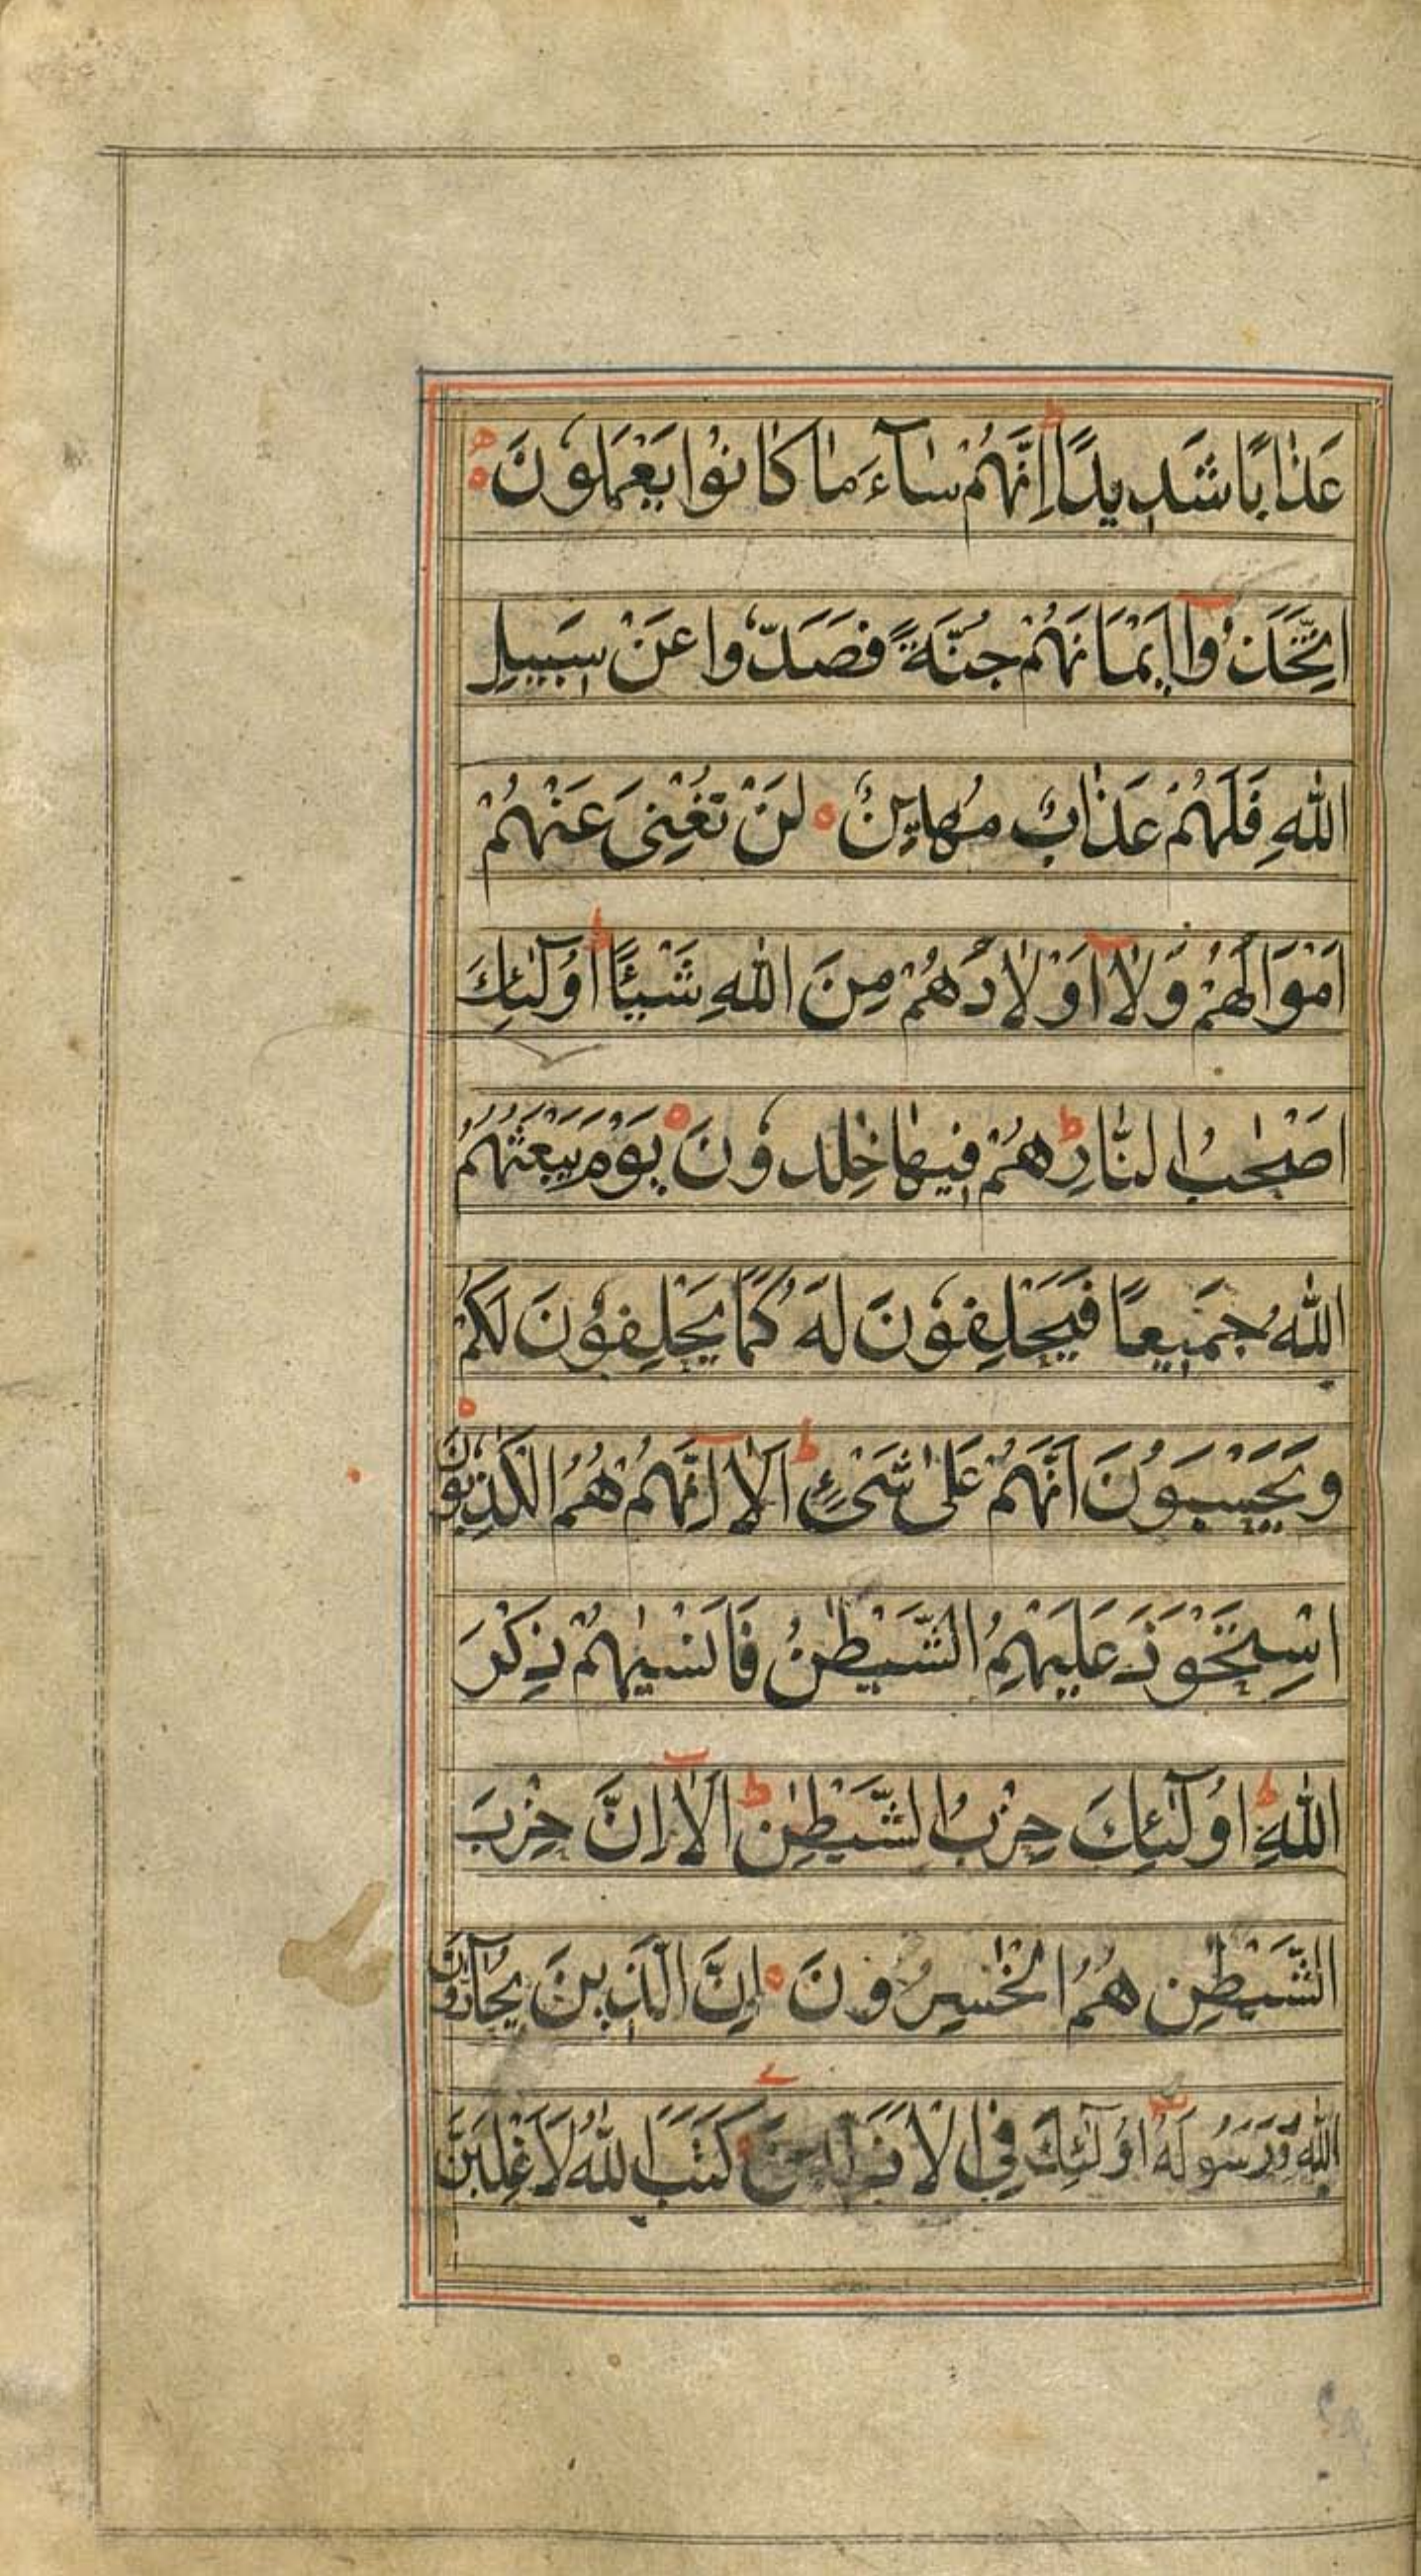 عَذَابًا شَدِيدًا ط اِنَّهُمْ سَآءَ مَا كَانُوْا يَعْمَلُوْنَ ه
اِتَّخَذُوْٓا اَيْمَانَهُمْ جُنَّةً فَصَدُّوْا عَنْ سَبِيْلِ
اللّٰهِ فَلَهُمْ عَذَابٌ مُهِيْنٌ ه لَنْ تُغْنِىَ عَنْهُمْ
اَمْوَالُهُمْ وَلَآ اَوْلَادُهُمْ مِنَ اللّٰهِ شَيْئًا ط اُولٰٓئِكَ
اَصْحٰبُ النَّارِ ط هُمْ فِيْهَا خٰلِدُوْنَ ه يَوْمَ يَبْعَثُهُمُ
اللّٰهُ جَمِيْعًا فَيَحْلِفُوْنَ لَهٗ كَمَا يَحْلِفُوْنَ لَكُمْ
وَيَحْسَبُوْنَ اَنَّهُمْ عَلٰى شَىْءٍ ط اَلَآ اِنَّهُمْ هُمُ الْكٰذِبُوْنَ ه
اِسْتَحْوَذَ عَلَيْهِمُ الشَّيْطٰنُ فَاَنْسٰيهُمْ ذِكْرَ
اللّٰهِ ط اُولٰٓئِكَ حِزْبُ الشَّيْطٰنِ ط اَلَآ اِنَّ حِزْبَ
الشَّيْطٰنِ هُمُ الْخٰسِرُوْنَ ه اِنَّ الَّذِيْنَ يُحَآدُّوْنَ
اللّٰهَ وَرَسُوْلَهٗٓ اُولٰٓئِكَ فِى كَتَبَ اللّٰهُ لَاَغْلِبَنَّ